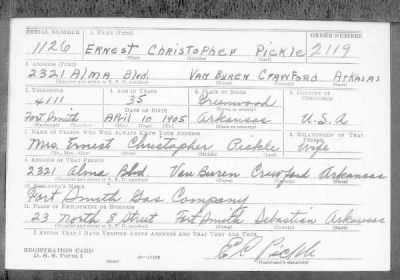 SERIAL NUMBER 1. NAME (Print) ORDER NUMBER
1126 ERNEST Christopher Pickle 2119
(First) (Middle) (Last)
2. ADDRESS (Print)
2321 Alma Blvd. VAN BUREN CRAWFORD ARKASAS
(Town) (County) (State)
3. TELEPHONE 4. AGE IN YEARS 5. PLACE OF BIRTH 6. COUNTRY OF CITIZENSHIP
4111 35 Greenwood
DATE OF BIRTH
Fort Smith April 10 1905 Arkansas U.S.A
7. NAME OF PERSON WHO WILL ALWAYS KNOW YOUR ADDRESS 8. RELATIONSHIP OF THAT PERSON
Mrs. Ernest Christopher Pickle wife
(Mr., Mrs., Miss) (First) (Middle) (Last)
9. ADDRESS OF THAT PERSON
2321 Alma Blvd Van Buren Crawford Arkansas
(Town) (County) (State)
10. EMPLOYER'S NAME
Fort Smith Gas Company
11. PLACE OF EMPLOYMENT OR BUSINESS
23 North 8 Street Fort Smith Sebastian Arkansas
(Town) (County) (State)
I AFFIRM THAT I HAVE VERIFIED ABOVE ANSWERS AND THAT THEY ARE TRUE.
REGISTRATION CARD
D. S. S. Form 1
(Registrant's signature)